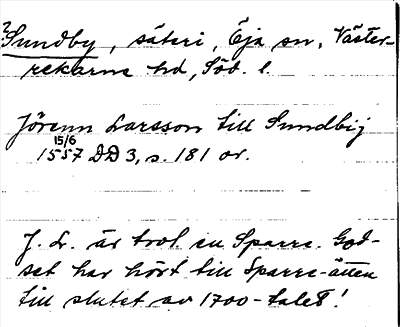 2
Sundby, säteri, Öja sn, Väster-
rekarne hd, Söd. l.
Jörenn Larsson till Sundbij
15/6
1557 DD 3, s. 181 or.
J. L. är trol. en Sparre. God-
set har hört till Sparre-ätten
till slutet av 1700-talet!